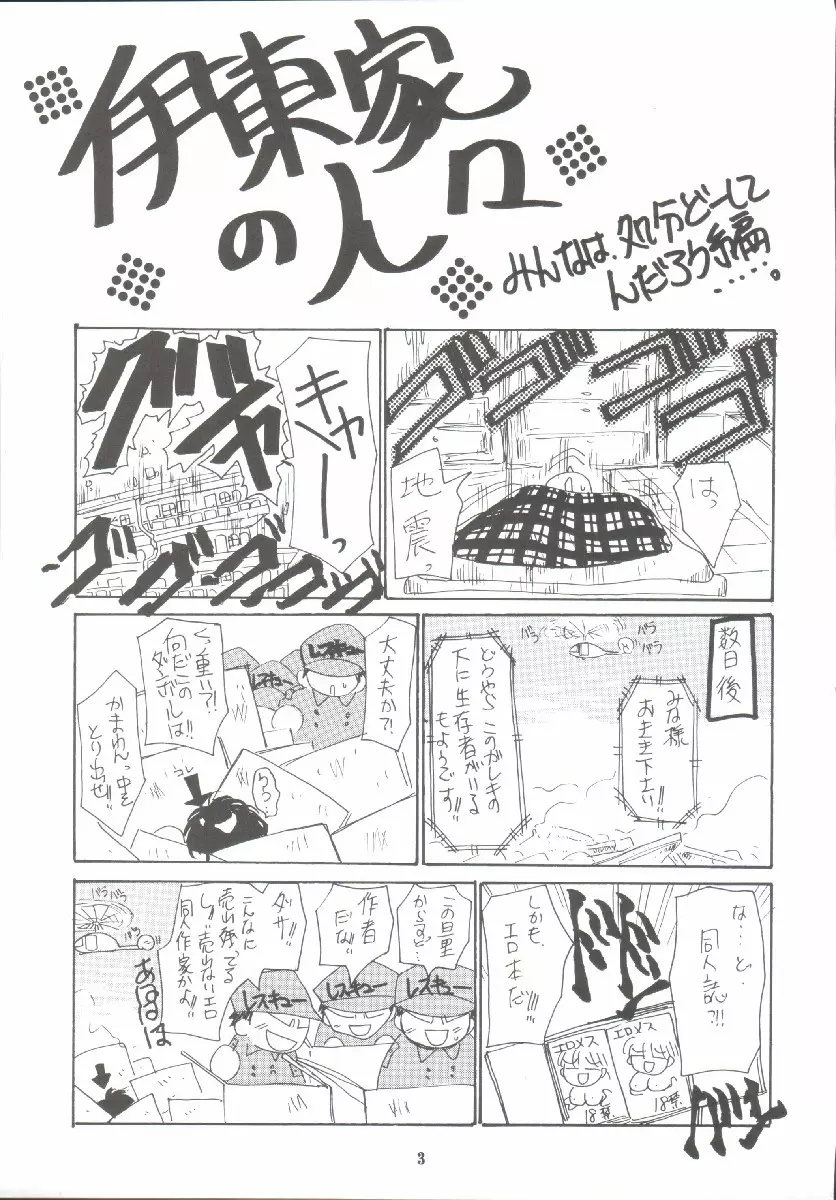 伊東家
の人口
みんなは、処分どーして
んだろう編
……。
ゴゴゴゴ
はっ
地震っ
キャーーっ
グバャ
ゴゴゴゴゴ
数日後
バラ
バラ
バラ
みな様
お聞き下さい!!
どうやら このがれきの
下に生存者がいる
もようです!!
大丈夫か?!
レスキュー
レスキュー
く、重い?!
何だこの
ダンボールは!!
かまわんっ中を
とり出せ!!
コレ
ううっ…
な…と、
同人誌?!!
しかも、
エロ本だ!!!
エロメス
エロメス
18禁
18禁
この量
からすと…
作者
だな
ダサッ
こんなに
売れ残ってる
しょぼい売れないエロ
同人作家かよ!!
レスキュー
レスキュー
レスキュー
バラ
バラ
あははは
3